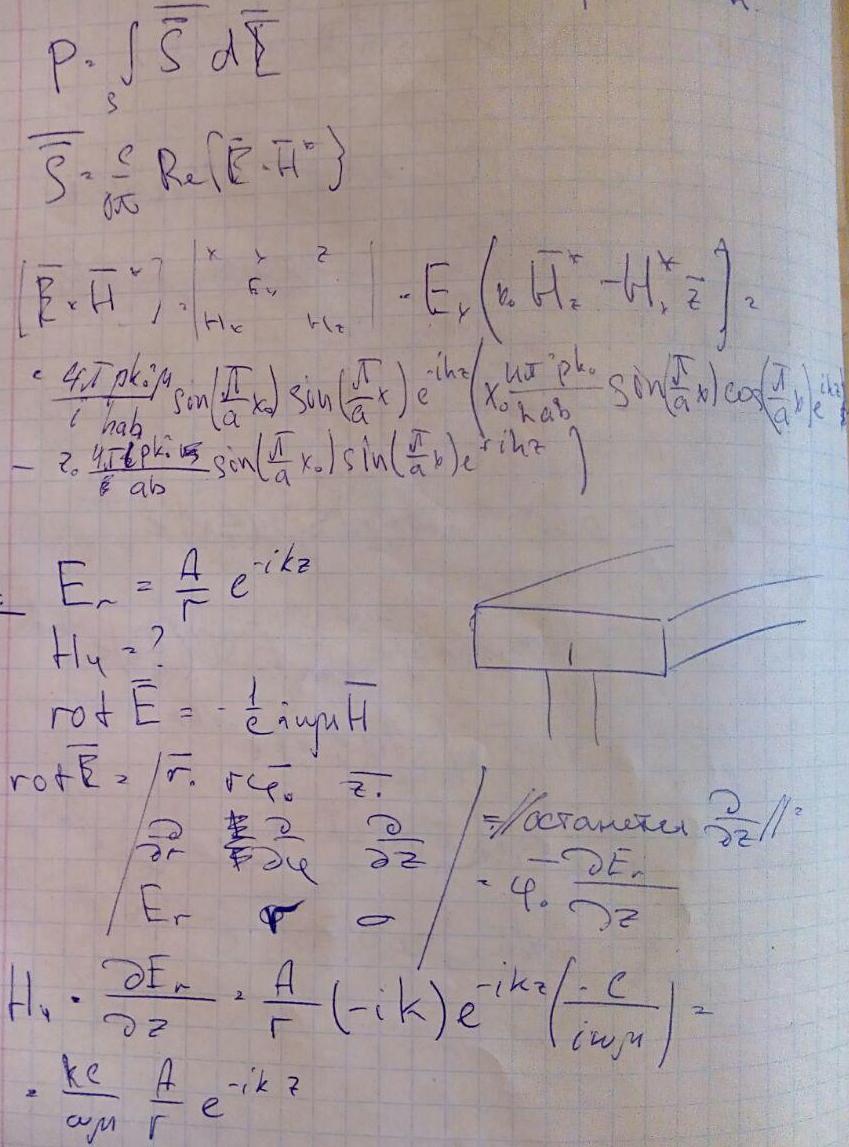 P = ∫_S S̄ dΣ̄
S̄ = c/8π Re{Ē × H̄*}
[Ē × H̄*] = | x y z ; E_y ; H_x H_z | = E_y (x̄₀ H̄_z* − H_x* z̄] =
= 4πpk₀μ/(i hab) sin(π/a x₀) sin(π/a x) e^{-ihz} (x₀ 4π²pk₀/(hab) sin(π/a x₀) cos(π/a x) e^{ihz}
− z₀ 4πpk₀/(ab) sin(π/a x₀) sin(π/a x) e^{+ihz} )
E_r = A/r e^{-ikz}
H_φ = ?
rot Ē = − 1/c iωμ H̄
rot Ē = | r̄₀ rφ̄₀ z̄₀ ; ∂/∂r ∂/∂φ ∂/∂z ; E_r 0 0 | = //останется ∂/∂z// =
= φ̄₀ ∂E_r/∂z
H_φ = ∂E_r/∂z = A/r (−ik) e^{-ikz} (−c/iωμ) =
= kc/ωμ A/r e^{-ikz}